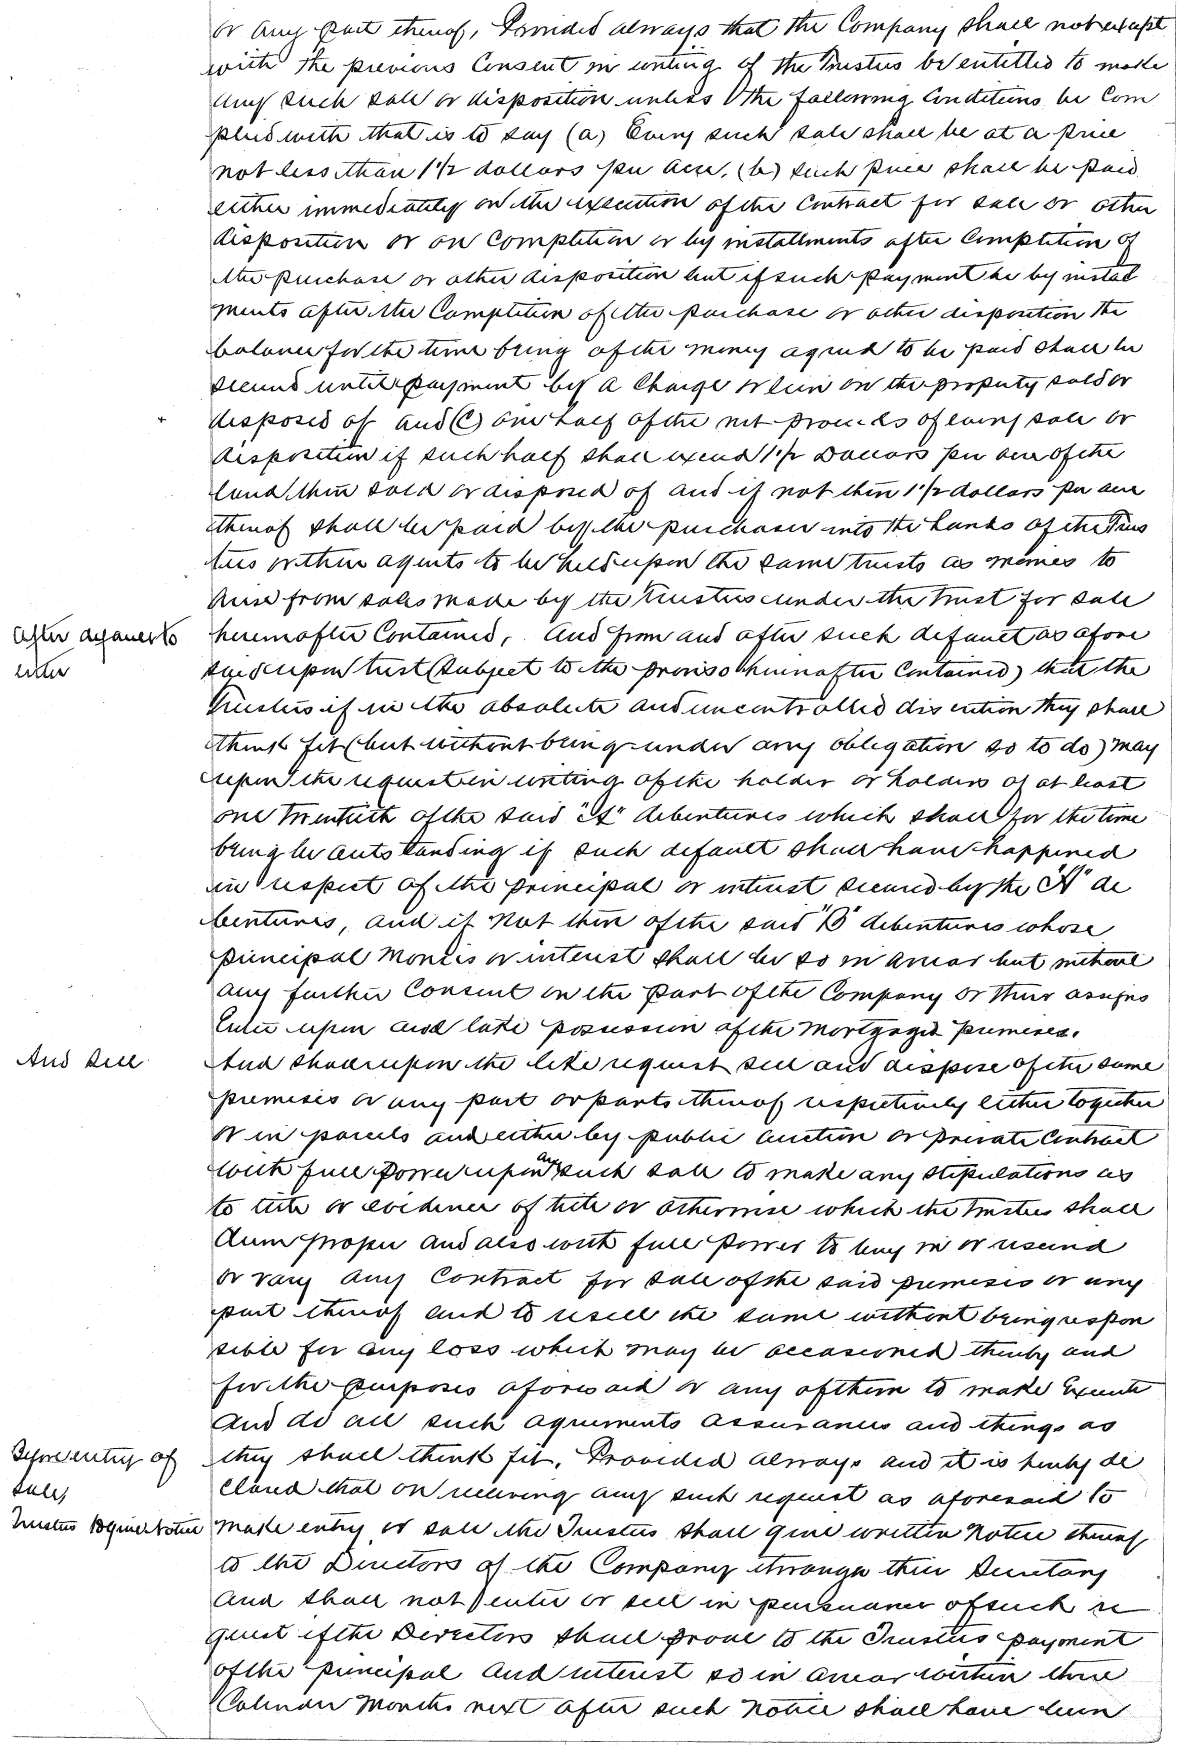 or any part thereof, Provided always that the Company shall not except
with the previous Consent in writing of the Trustees be entitled to make
any such sale or disposition unless the following Conditions be Com
plied with that is to say (a) Every such sale shall be at a price
not less than 1 1/2 dollars per acre, (b) such price shall be paid
either immediately on the execution of the Contract for sale or other
disposition or on Completion or by installments after Completion of
the purchase or other disposition but if such payment be by instal
ments after the Completion of the purchase or other disposition the
balance for the time being of the money agreed to be paid shall be
secured until payment by a Charge or lien on the property sold or
disposed of and (C) one half of the net proceeds of every sale or
disposition if such half shall exceed 1 1/2 Dollars per acre of the
land then sold or disposed of and if not then 1 1/2 dollars per acre
thereof shall be paid by the purchaser into the hands of the Trus
tees or their agents to be held upon the same trusts as monies to
arise from sales made by the Trustees under the Trust for sale
After default to
enter
hereinafter Contained, And from and after such default as afore
said upon trust (subject to the proviso hereinafter Contained) that the
Trustees if in the absolute and uncontrolled discretion they shall
think fit (but without being under any obligation so to do) may
upon the request in writing of the holder or holders of at least
one twentieth of the said "A" debentures which shall for the time
being be outstanding if such default shall have happened
in respect of the principal or interest secured by the "A" de
bentures, and if not then of the said "B" debentures whose
principal Monies or interest shall be so in arrear but without
any further Consent on the part of the Company or their assigns
Enter upon and take possession of the Mortgaged premises.
And sell
And shall upon the like request sell and dispose of the same
premises or any part or parts thereof respectively either together
or in parcels and either by public auction or private Contract
with full power upon any such sale to make any stipulations as
to title or evidence of title or otherwise which the Trustees shall
deem proper and also with full power to buy in or rescind
or vary any Contract for sale of the said premises or any
part thereof and to resell the same without being respon
sible for any loss which may be occasioned thereby and
for the purposes aforesaid or any of them to make Execute
and do all such agreements assurances and things as
Before entry of
sale,
Trustees to give Notice
they shall think fit. Provided always and it is hereby de
clared that on receiving any such request as aforesaid to
make entry or sale the Trustees shall give written Notice thereof
to the Directors of the Company through their Secretary
and shall not enter or sell in pursuance of such re
quest if the Directors shall prove to the Trustees payment
of the principal and interest so in arrear within three
Calendar Months next after such Notice shall have been